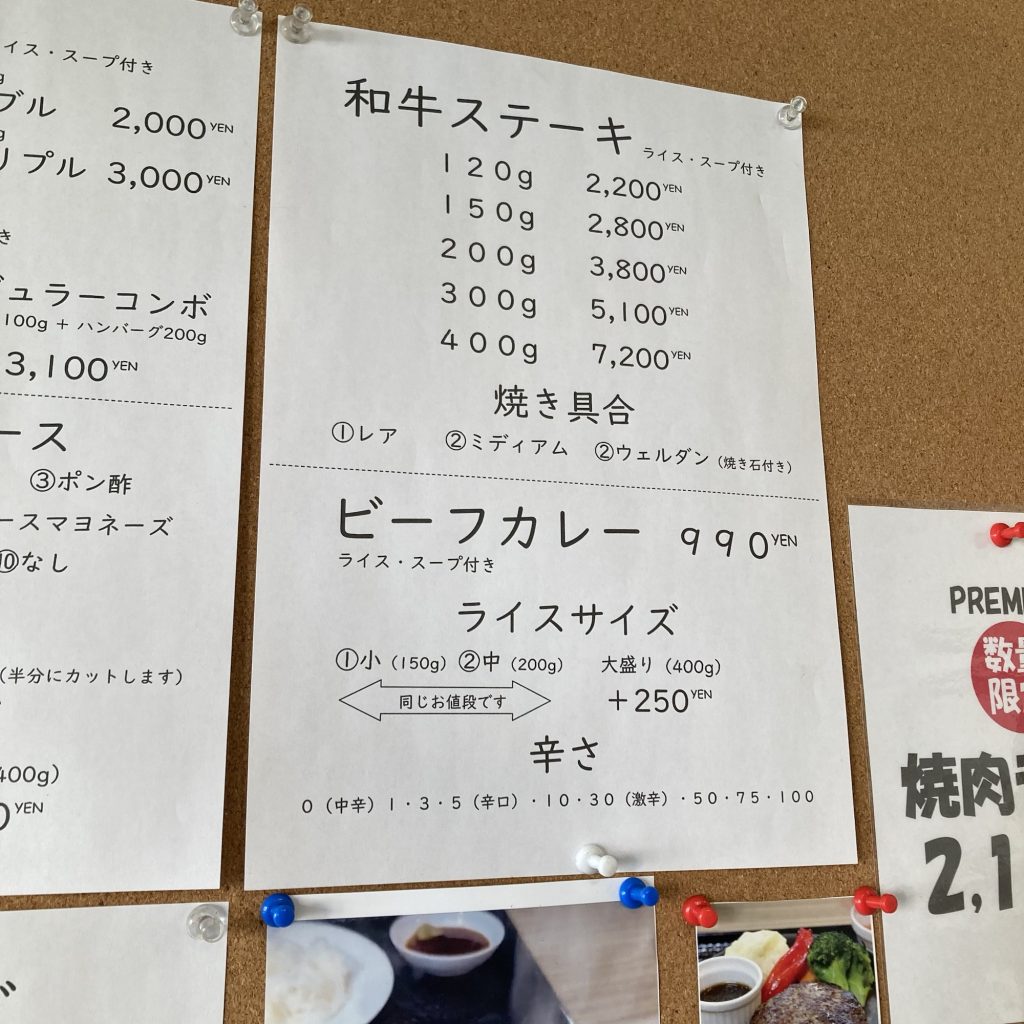 イス・スープ付き
ブル 2,000YEN
リプル 3,000YEN
き
ュラーコンボ
100g + ハンバーグ200g
3,100YEN
ース
③ポン酢
ースマヨネーズ
⑩なし
(半分にカットします)
400g)
0YEN
和牛ステーキ ライス・スープ付き
120g 2,200YEN
150g 2,800YEN
200g 3,800YEN
300g 5,100YEN
400g 7,200YEN
焼き具合
①レア ②ミディアム ②ウェルダン (焼き石付き)
ビーフカレー 990YEN
ライス・スープ付き
ライスサイズ
①小 (150g) ②中 (200g) 大盛り (400g)
同じお値段です +250YEN
辛さ
0 (中辛) 1・3・5 (辛口)・10・30 (激辛)・50・75・100
PREM
数量
限定
焼肉
2,1